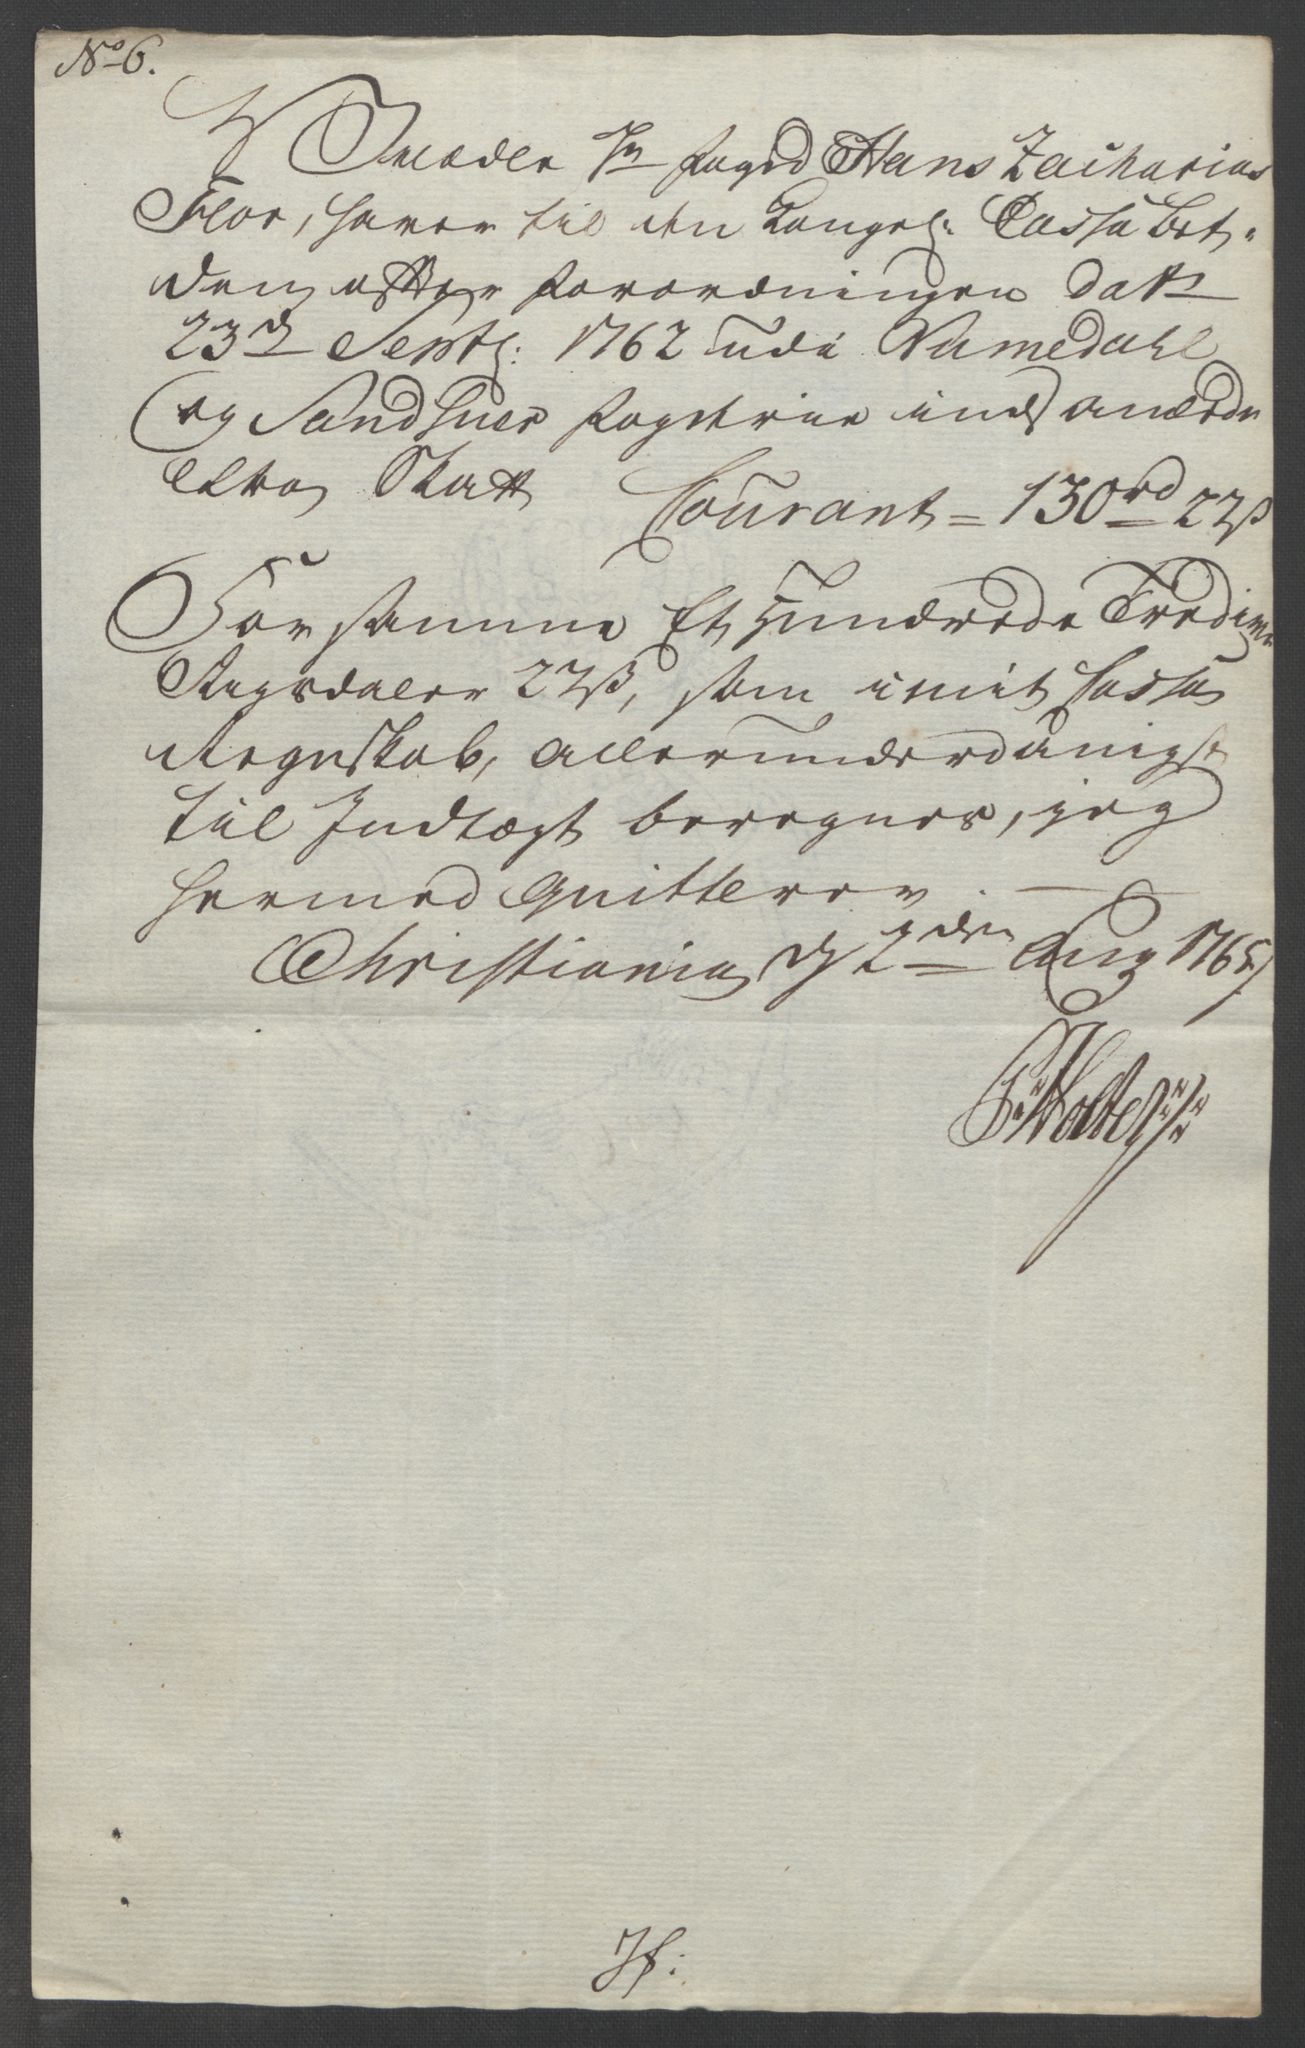 No 6.
Velædle Hr Foged Hans Zacharias
Flor, haver til den Kongel: Cassa bet-
den efter Forordningen dat
23de Septr: 1762 udi Numedahl
og Sandsver Fogderie anordnede
Extra Skatt Courant = 130 rd 22 ß
For samme Et Hundrede Tredive
Rigsdaler 22 ß, som i mit Cassa
Regnskab, allerunderdanigst
til Indtægt beregnes, jeg
hermed qvitterer.
Christiania d 2den Aug 1765
Holter